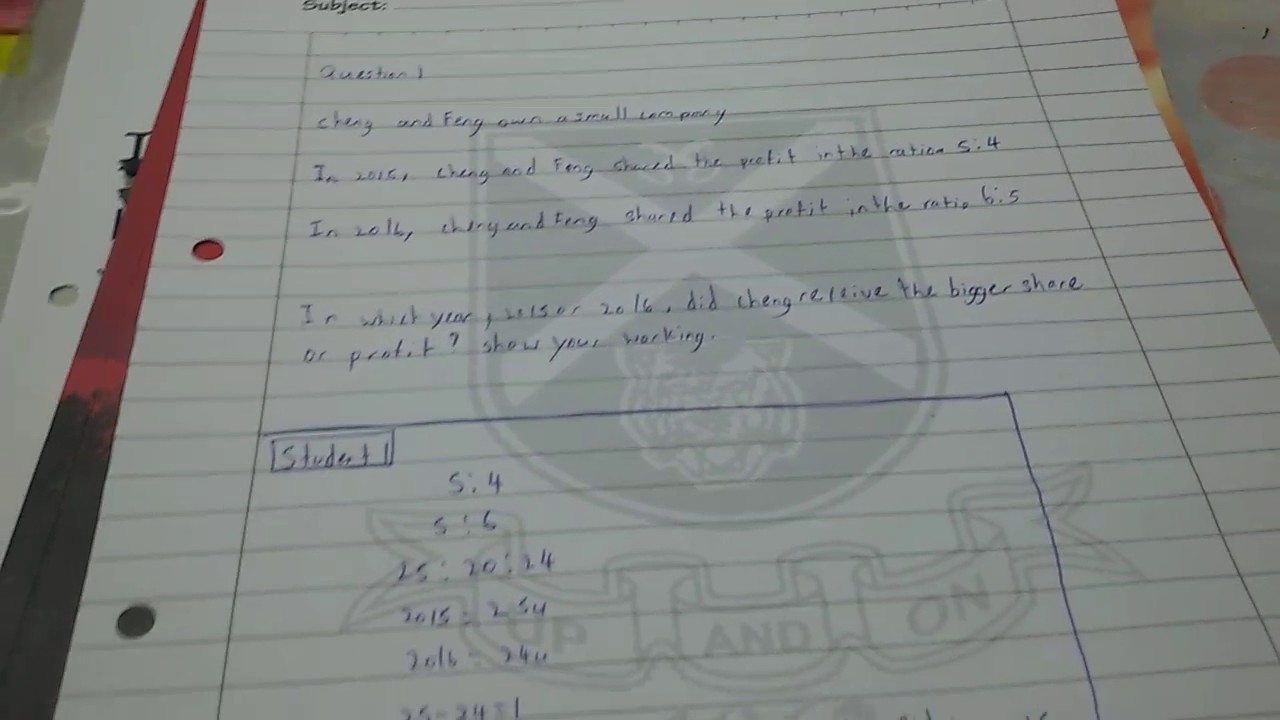 Subject:
Question 1
Cheng and Feng own a small company
In 2015, Cheng and Feng shared the profit in the ration 5:4
In 2016, Cheng and Feng shared the profit in the ratio 6:5
In which year, 2015 or 2016, did Cheng receive the bigger share
or profit? show your working.
Student 1
5:4
5:6
25:20:24
2015 = 25u
2016 = 24u
25-24=1
UP AND ON